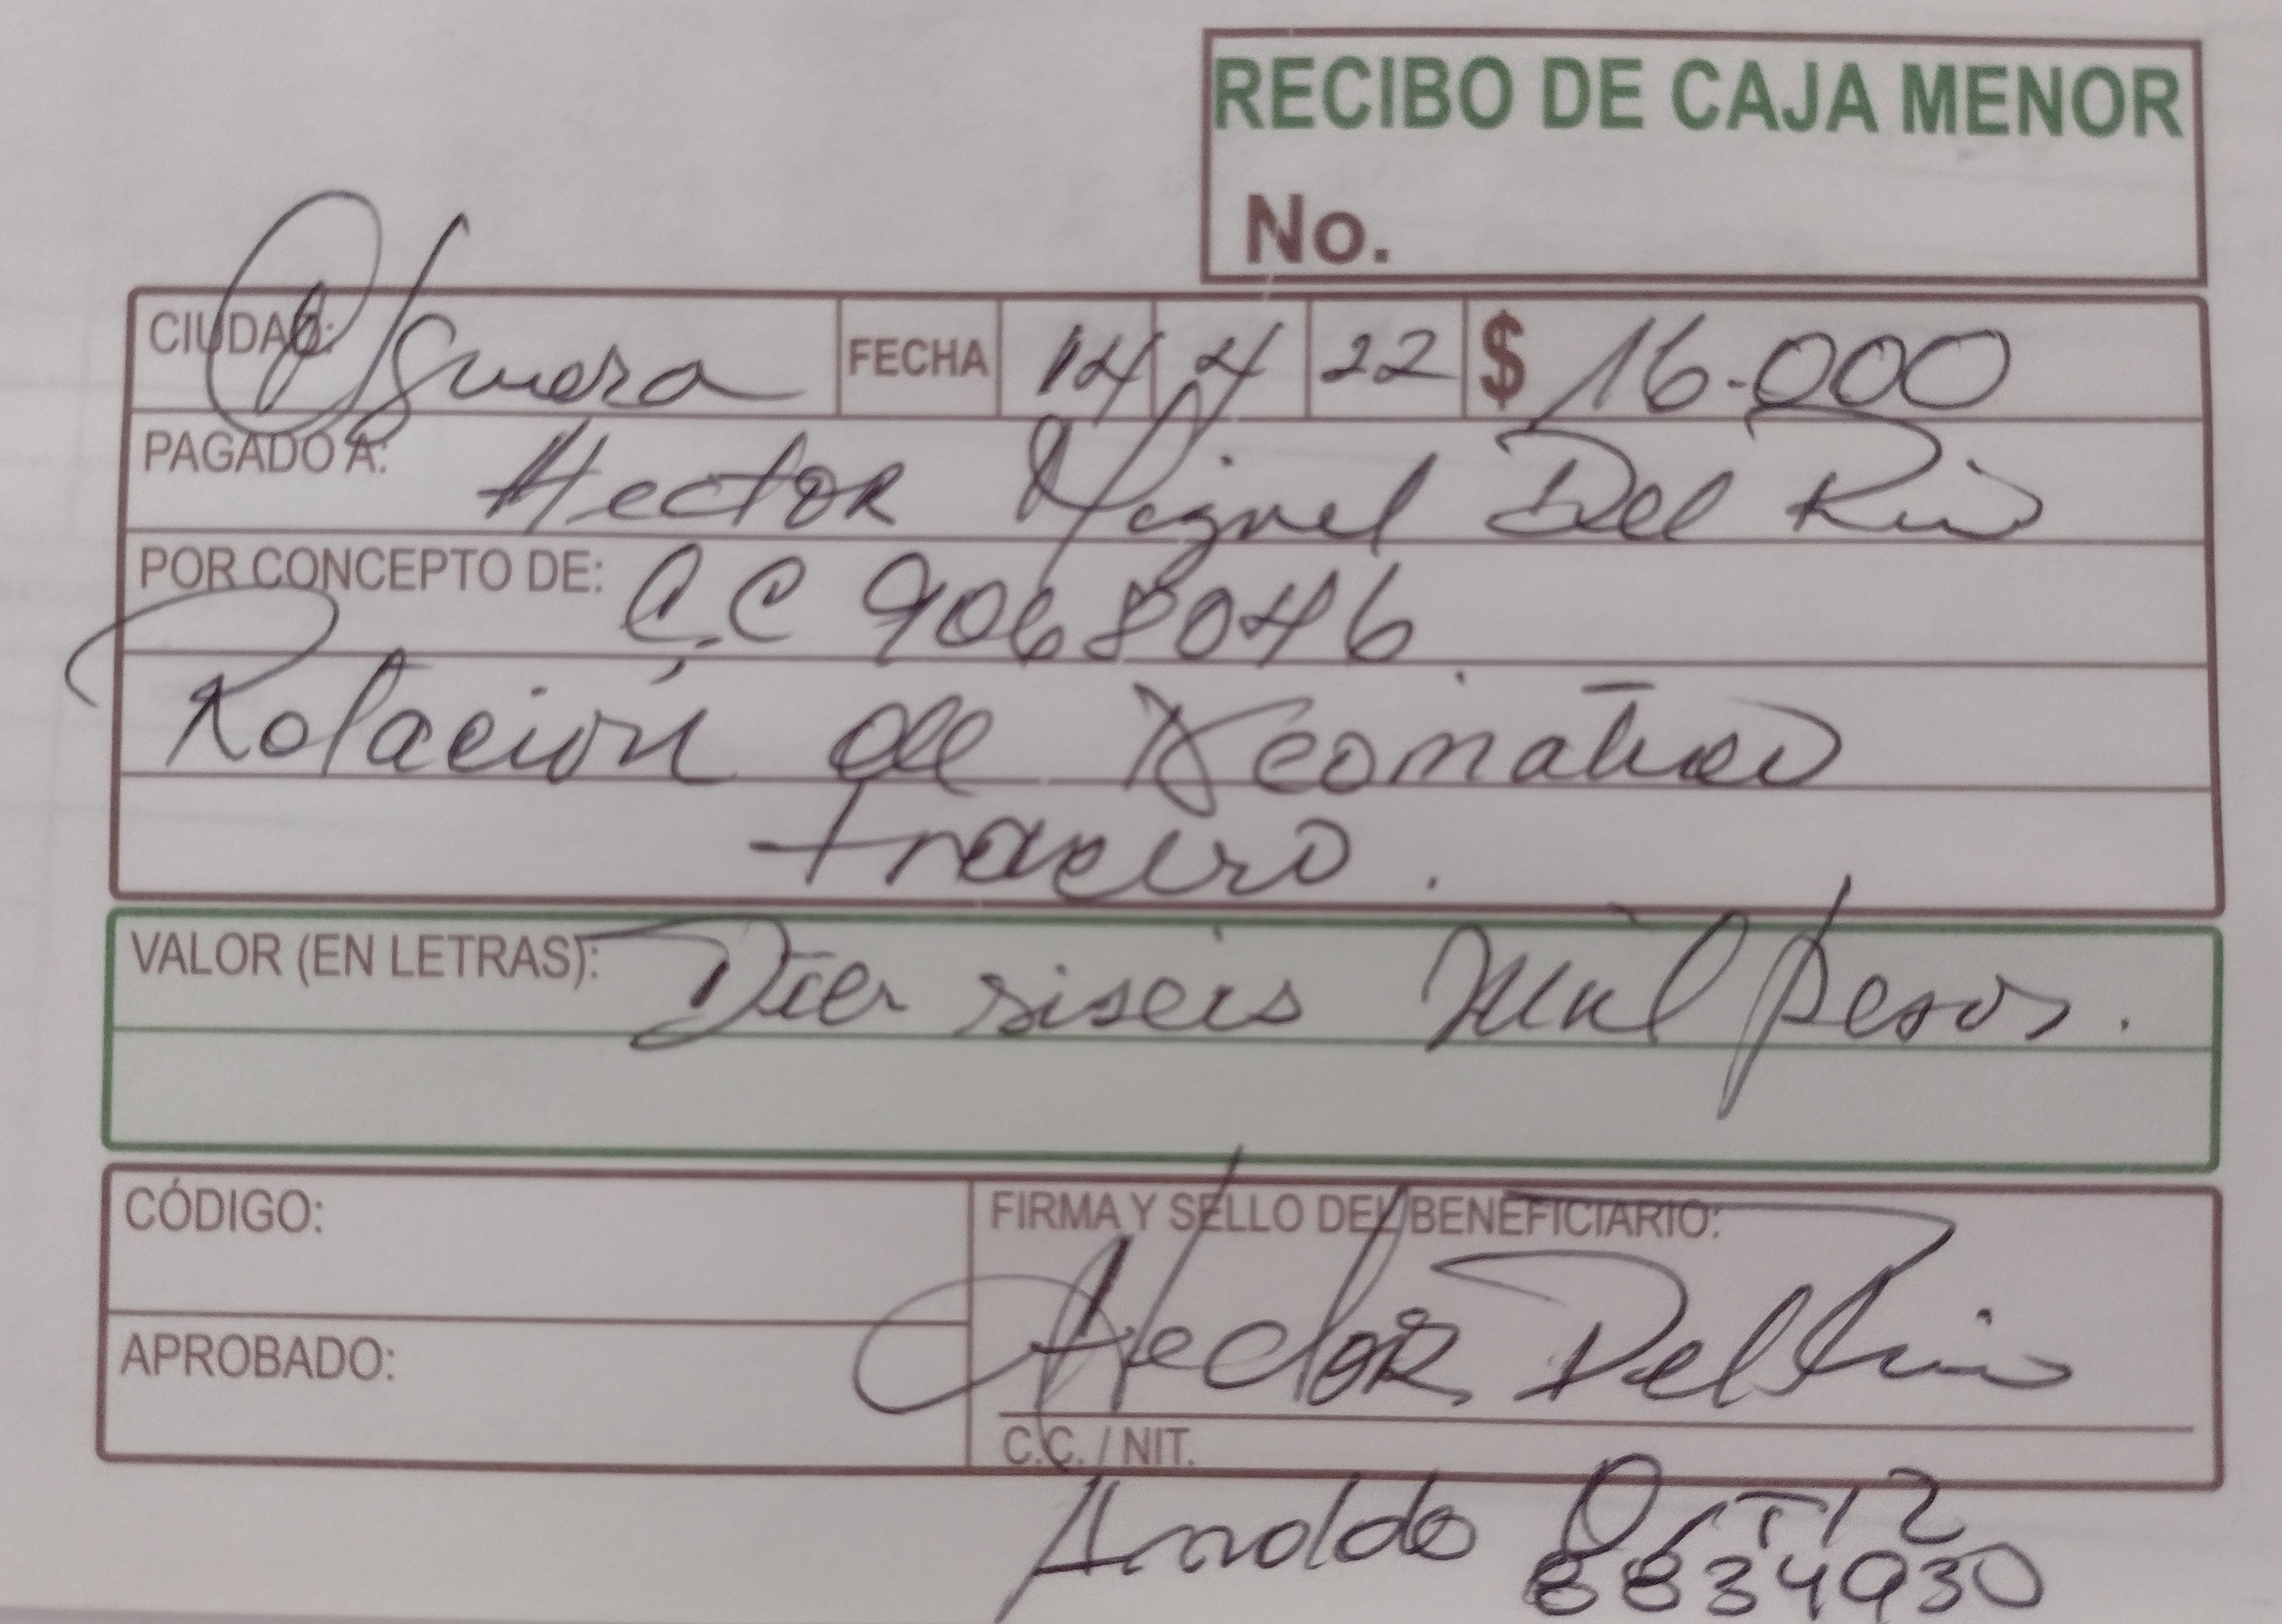 RECIBO DE CAJA MENOR
No.
CIUDAD: FECHA 14 4 22 $ 16.000
PAGADO A: Hector Miguel Del Rio
POR CONCEPTO DE: C.C 9068046
Rotación de
trasero.
VALOR (EN LETRAS): Diez siseis mil pesos.
CÓDIGO: FIRMA Y SELLO DEL BENEFICIARIO:
Hector Del Rio
APROBADO:
C.C. / NIT.
Arnoldo Ortiz
8834930